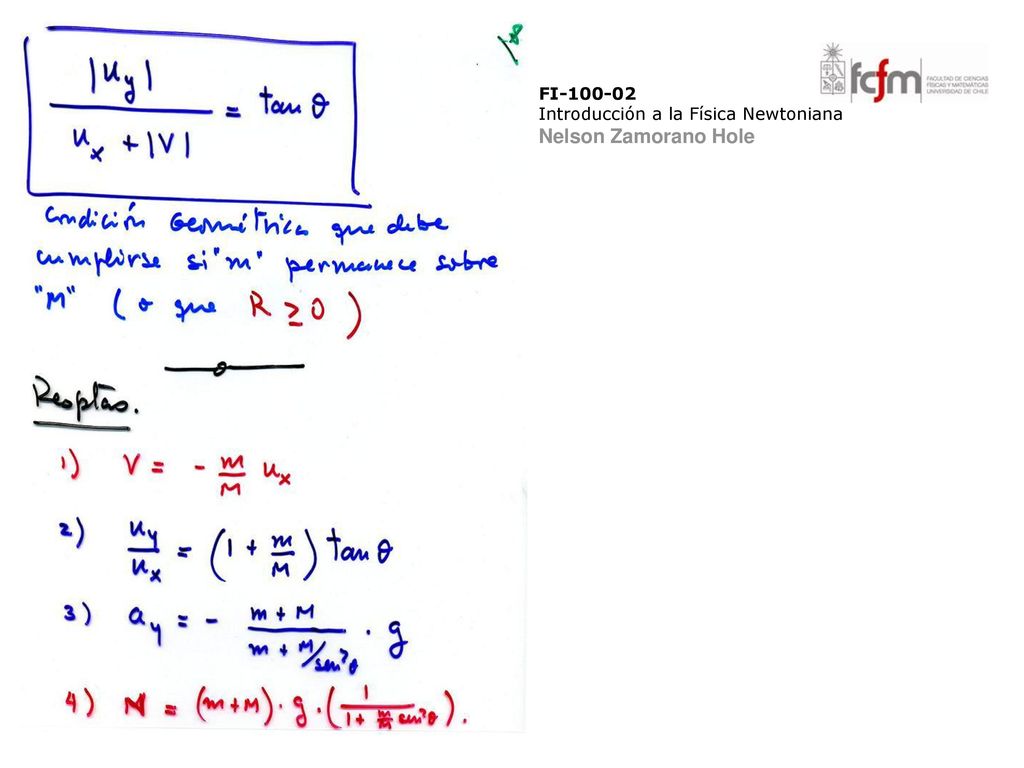 8
|u_y| / (u_x + |V|) = tan θ
Condición Geométrica que debe
cumplirse si "m" permanece sobre
"M" ( o que R ≥ 0 )
Resptas.
1) V = - m/M u_x
2) u_y/u_x = (1 + m/M) tan θ
3) a_y = - (m + M)/(m + M/sen²θ) · g
4) N = (m+M) · g · (1/(1 + m/M sen²θ)).
FI-100-02
Introducción a la Física Newtoniana
Nelson Zamorano Hole
fcfm
FACULTAD DE CIENCIAS
FÍSICAS Y MATEMÁTICAS
UNIVERSIDAD DE CHILE